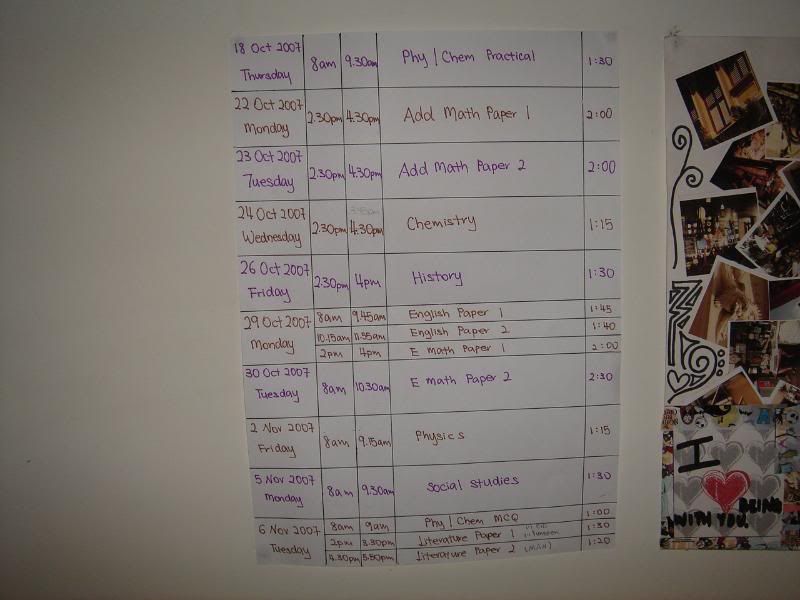 18 Oct 2007 8am 9.30am Phy | Chem Practical 1:30
Thursday
22 Oct 2007 2.30pm 4.30pm Add Math Paper 1 2:00
Monday
23 Oct 2007 2.30pm 4.30pm Add Math Paper 2 2:00
Tuesday
24 Oct 2007 2.30pm 4.30pm Chemistry 1:15
Wednesday
26 Oct 2007 2.30pm 4pm History 1:30
Friday
29 Oct 2007 8am 9.45am English Paper 1 1:45
Monday 10.15am 11.55am English Paper 2 1:40
2pm 4pm E math Paper 1 2:00
30 Oct 2007 8am 10.30am E math Paper 2 2:30
Tuesday
2 Nov 2007 8am 9.15am Physics 1:15
Friday
5 Nov 2007 8am 9.30am Social studies 1:30
Monday
6 Nov 2007 8am 9am Phy | Chem MCQ 1:00
Tuesday 2pm 3.30pm Literature Paper 1 1:30
4.30pm 5.50pm Literature Paper 2 (MAN) 1:20
I
BEING
WITH YOU